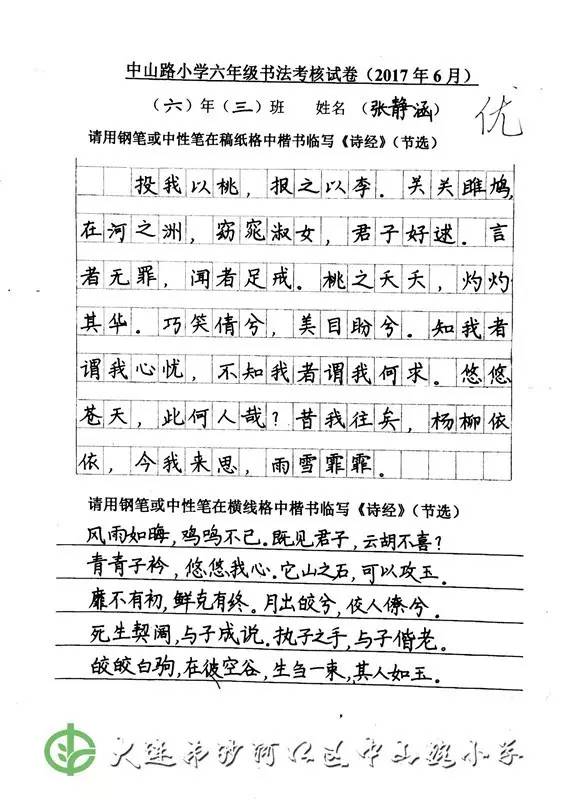 中山路小学六年级书法考核试卷（2017年6月）
（六）年（三）班 姓名（张静涵）
优
请用钢笔或中性笔在稿纸格中楷书临写《诗经》（节选）
投我以桃，报之以李．关关雎鸠，
在河之洲，窈窕淑女，君子好逑．言
者无罪，闻者足戒．桃之夭夭，灼灼
其华．巧笑倩兮，美目盼兮．知我者
谓我心忧，不知我者谓我何求．悠悠
苍天，此何人哉？昔我往矣，杨柳依
依，今我来思，雨雪霏霏．
请用钢笔或中性笔在横线格中楷书临写《诗经》（节选）
风雨如晦，鸡鸣不已．既见君子，云胡不喜？
青青子衿，悠悠我心．它山之石，可以攻玉．
靡不有初，鲜克有终．月出皎兮，佼人僚兮．
死生契阔，与子成说．执子之手，与子偕老．
皎皎白驹，在彼空谷，生刍一束，其人如玉．
大连市沙河口区中山路小学